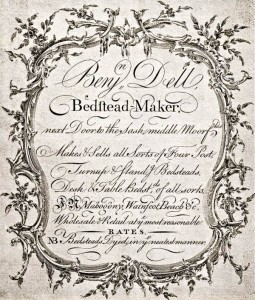 Benjn. Dell
Bedstead-Maker,
next Door to the Sash, middle Moorfds
Makes & Sells all Sorts of Four Post,
Turnup & Stand Bedsteads,
Desk & Table Bedsts. of all sorts
Mahogony, Wainscot, Beach &c.
Wholesale & Retail at ye most reasonable
RATES.
NB Bedsteads Dyed, in ye neatest manner